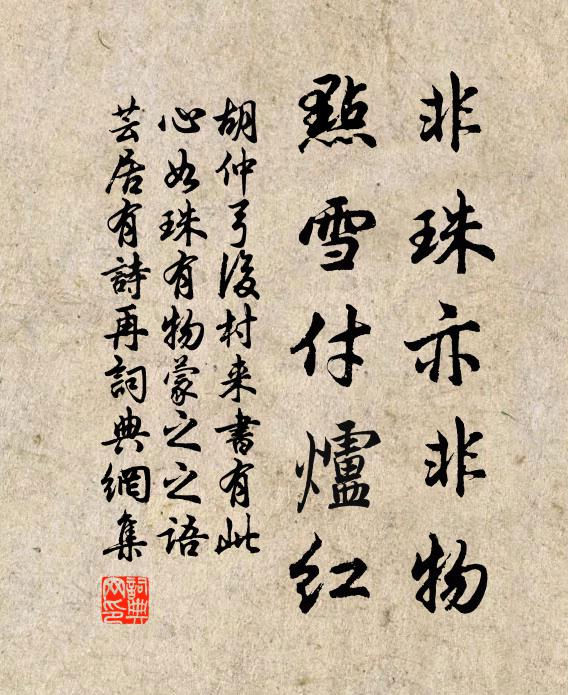 非珠亦非物
點雪付爐紅
胡仲弓後村来書有此
心如珠有物蒙之之語
芸居有詩再詞典網集
詞典網印